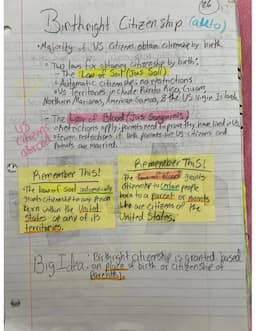 86
Birthright Citizenship (auto)
• Majority of US Citizens obtain citizenship by birth
• Two laws for obtaining citizenship by birth:
- The Law of Soil (Jus Soli)
• Automatic citizenship; no restrictions
• US Territories include Puerto Rico, Guam,
Northern Marianas, American Samoa, & the US Virgin Islands
- The Law of Blood (Jus Sanguinis)
• Restrictions apply - parents need to prove they have lived in US
• Fewer restrictions if both parents are US citizens and
parents are married.
US
Citizens
abroad
Remember This!
• The law of soil automatically
grants citizenship to any person
born within the United
States or any of its
territories.
Remember This!
The law of blood grants
citizenship to certain people
born to a parent or parents
who are citizens of the
United States.
Big Idea: Birthright citizenship is granted based
on place of birth or citizenship of
parent(s).